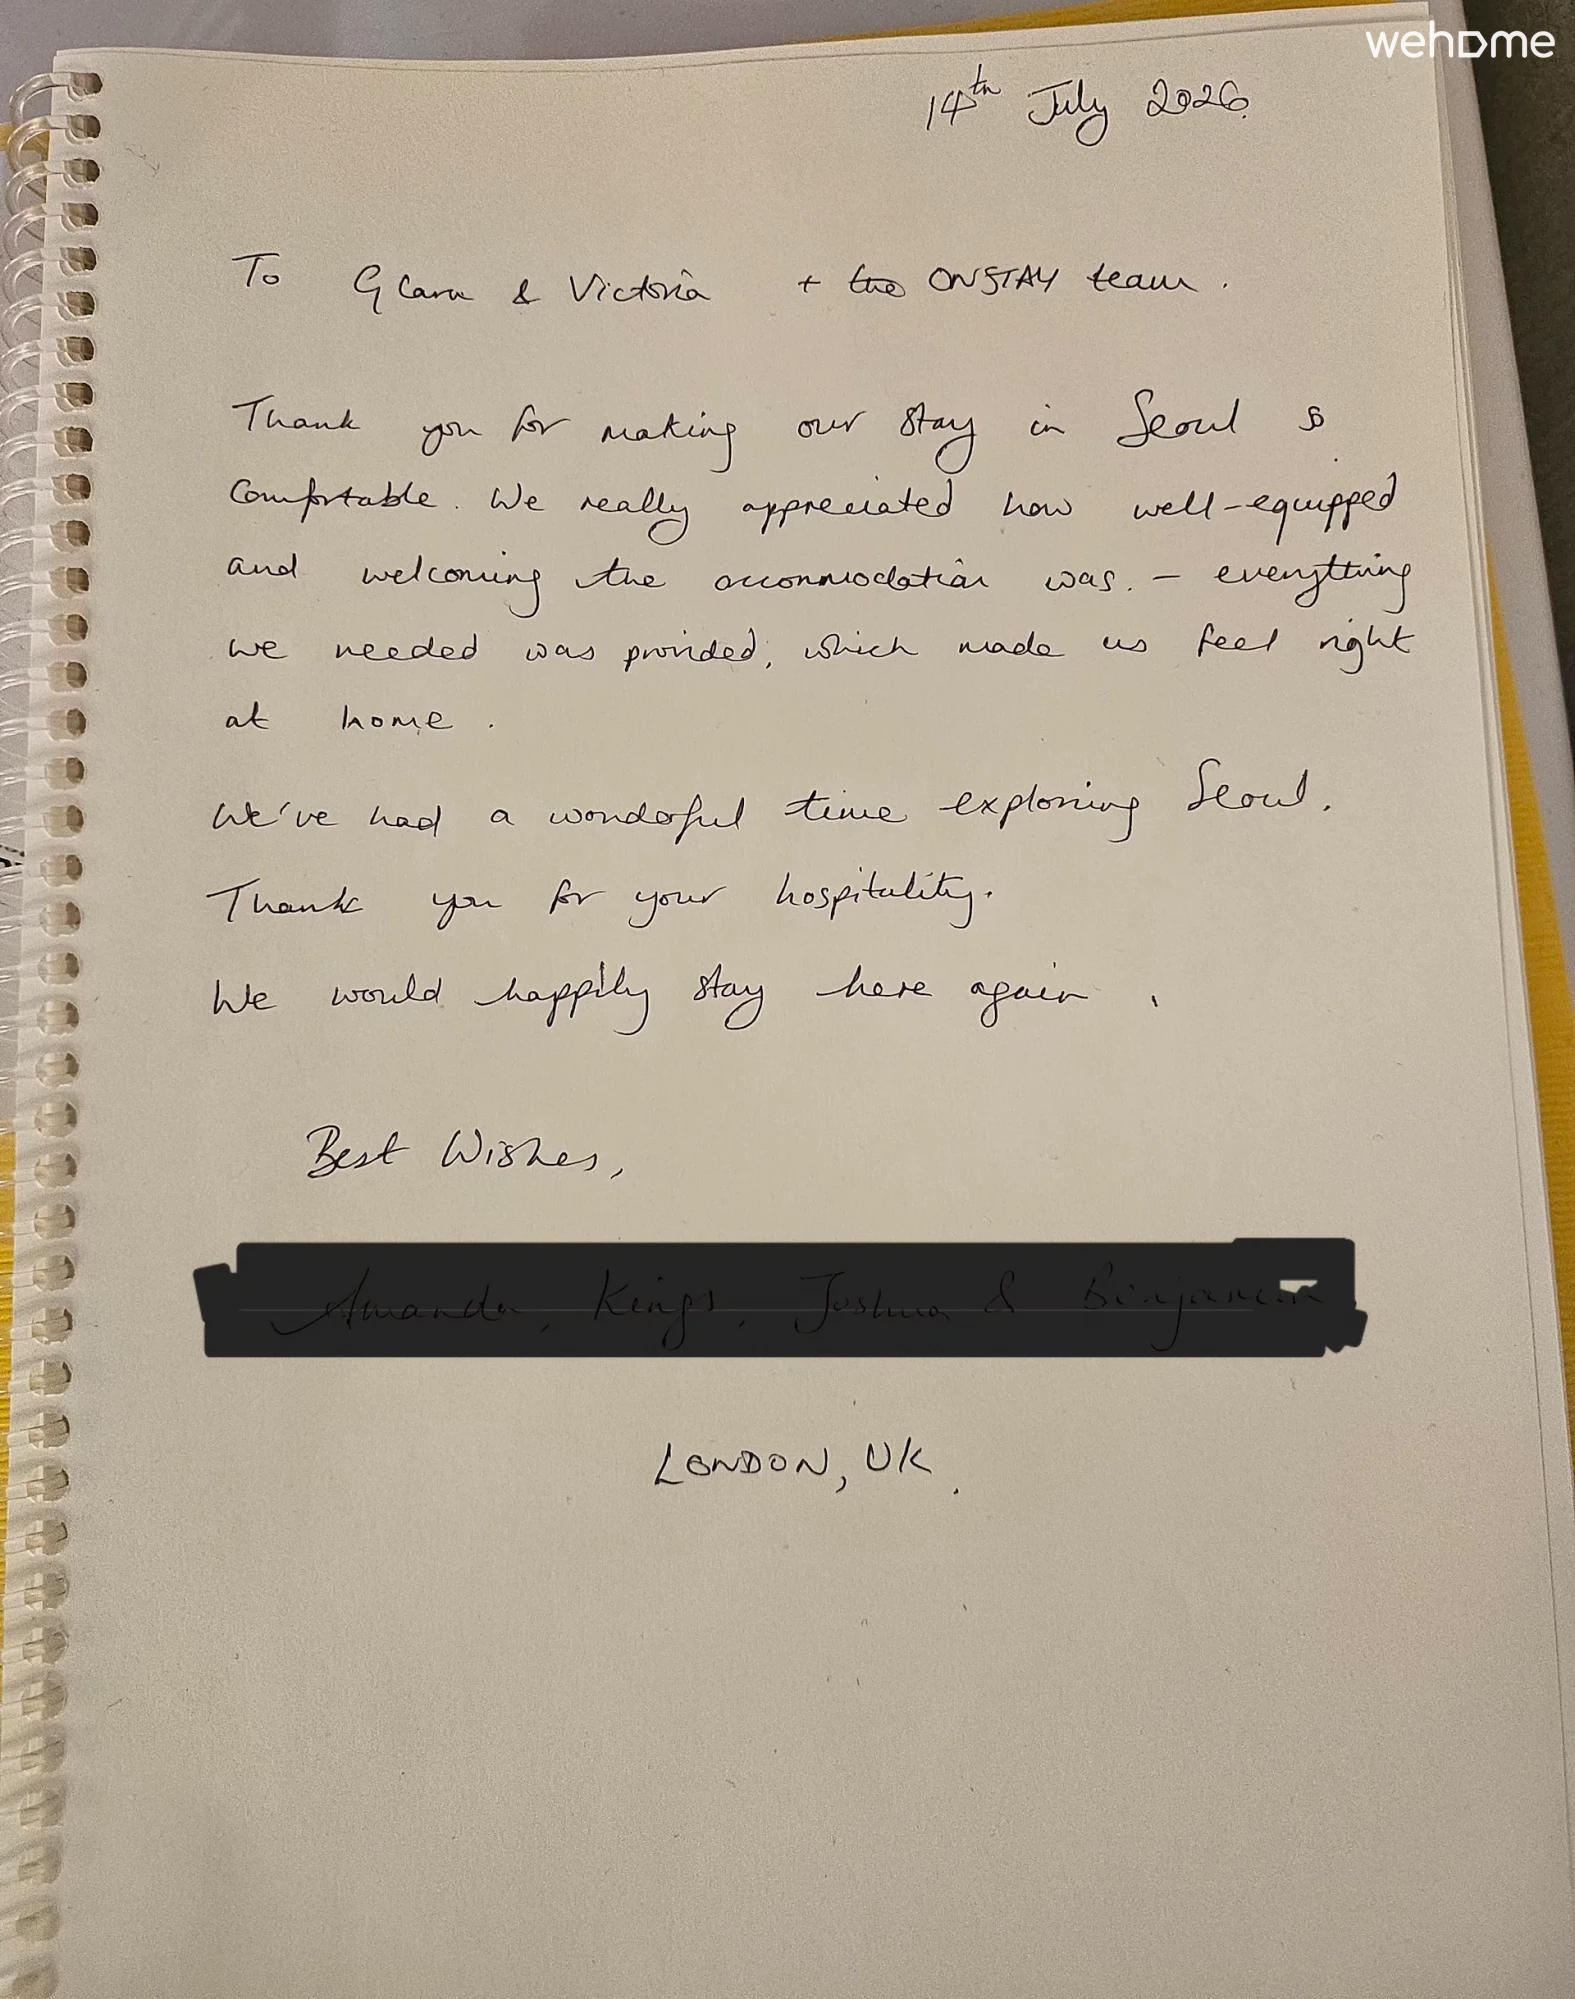 wehome
14th July 2026
To Clara & Victoria + the ONSTAY team.
Thank you for making our stay in Seoul so
comfortable. We really appreciated how well-equipped
and welcoming the accommodation was. - everything
we needed was provided, which made us feel right
at home.
We've had a wonderful time exploring Seoul.
Thank you for your hospitality.
We would happily stay here again.
Best Wishes,
LONDON, UK.